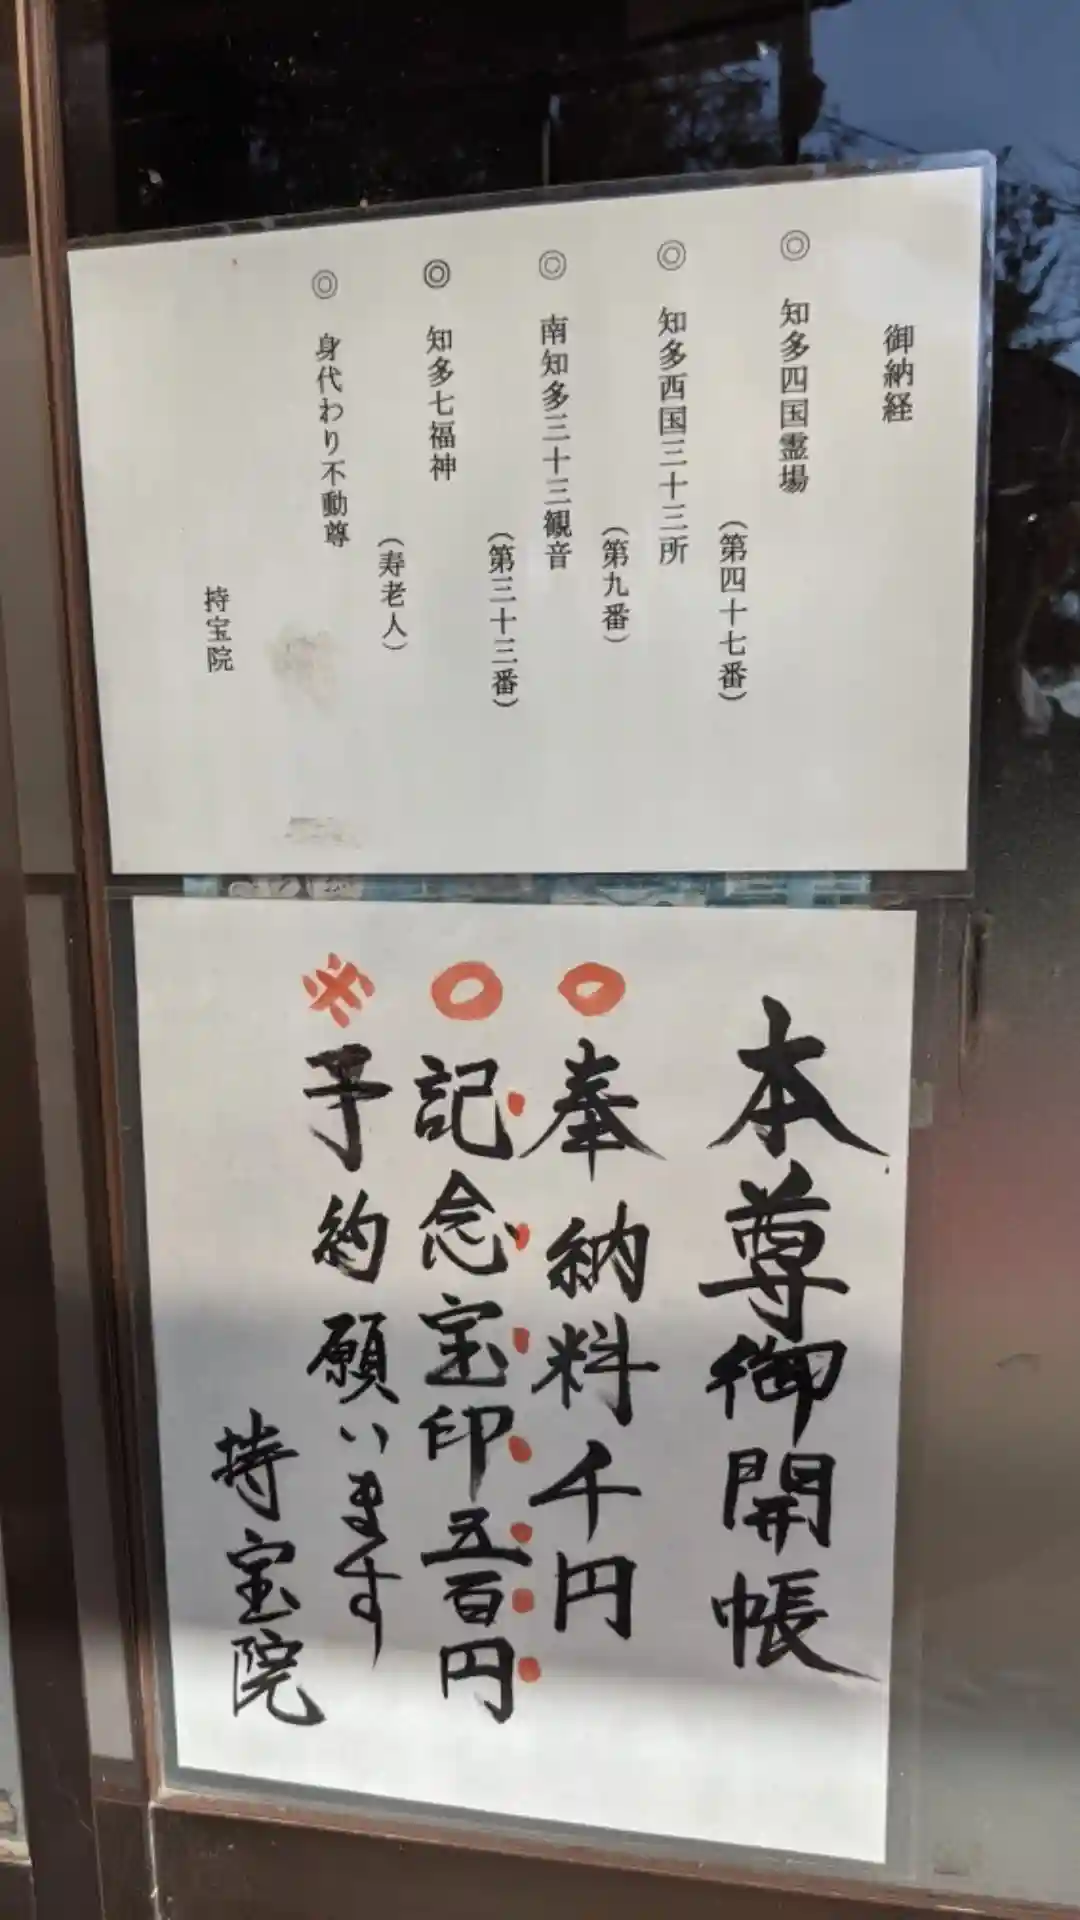 御納経
◎ 知多四国霊場
（第四十七番）
◎ 知多西国三十三所
（第九番）
◎ 南知多三十三観音
（第三十三番）
◎ 知多七福神
（寿老人）
◎ 身代わり不動尊
持宝院
本尊御開帳
○奉納料千円
○記念宝印五百円
※予約願います
持宝院